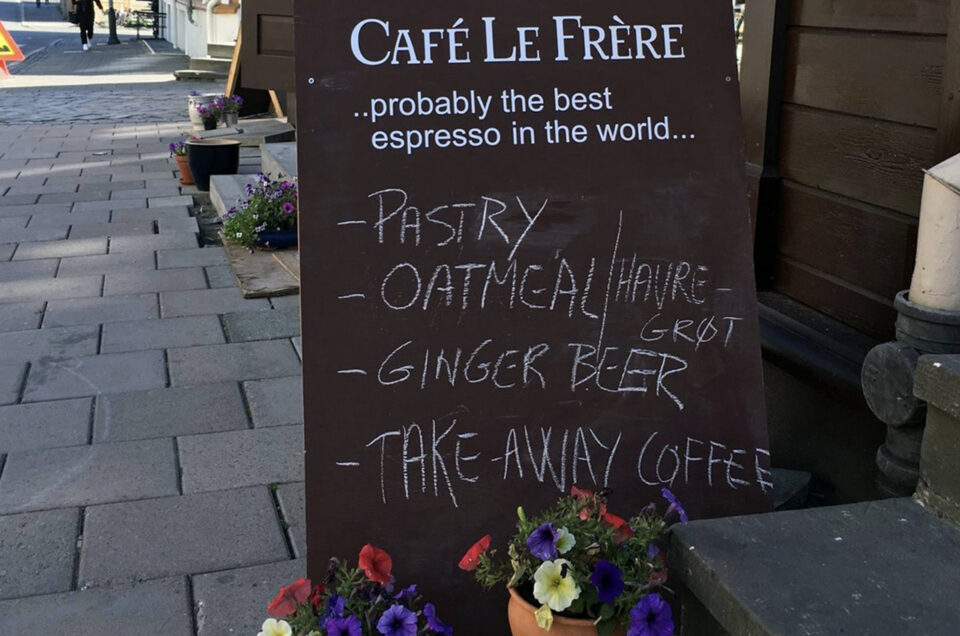 CAFÉ LE FRÈRE
..probably the best
espresso in the world...
- PASTRY
- OATMEAL/HAVRE-
GRØT
- GINGER BEER
- TAKE-AWAY COFFEE